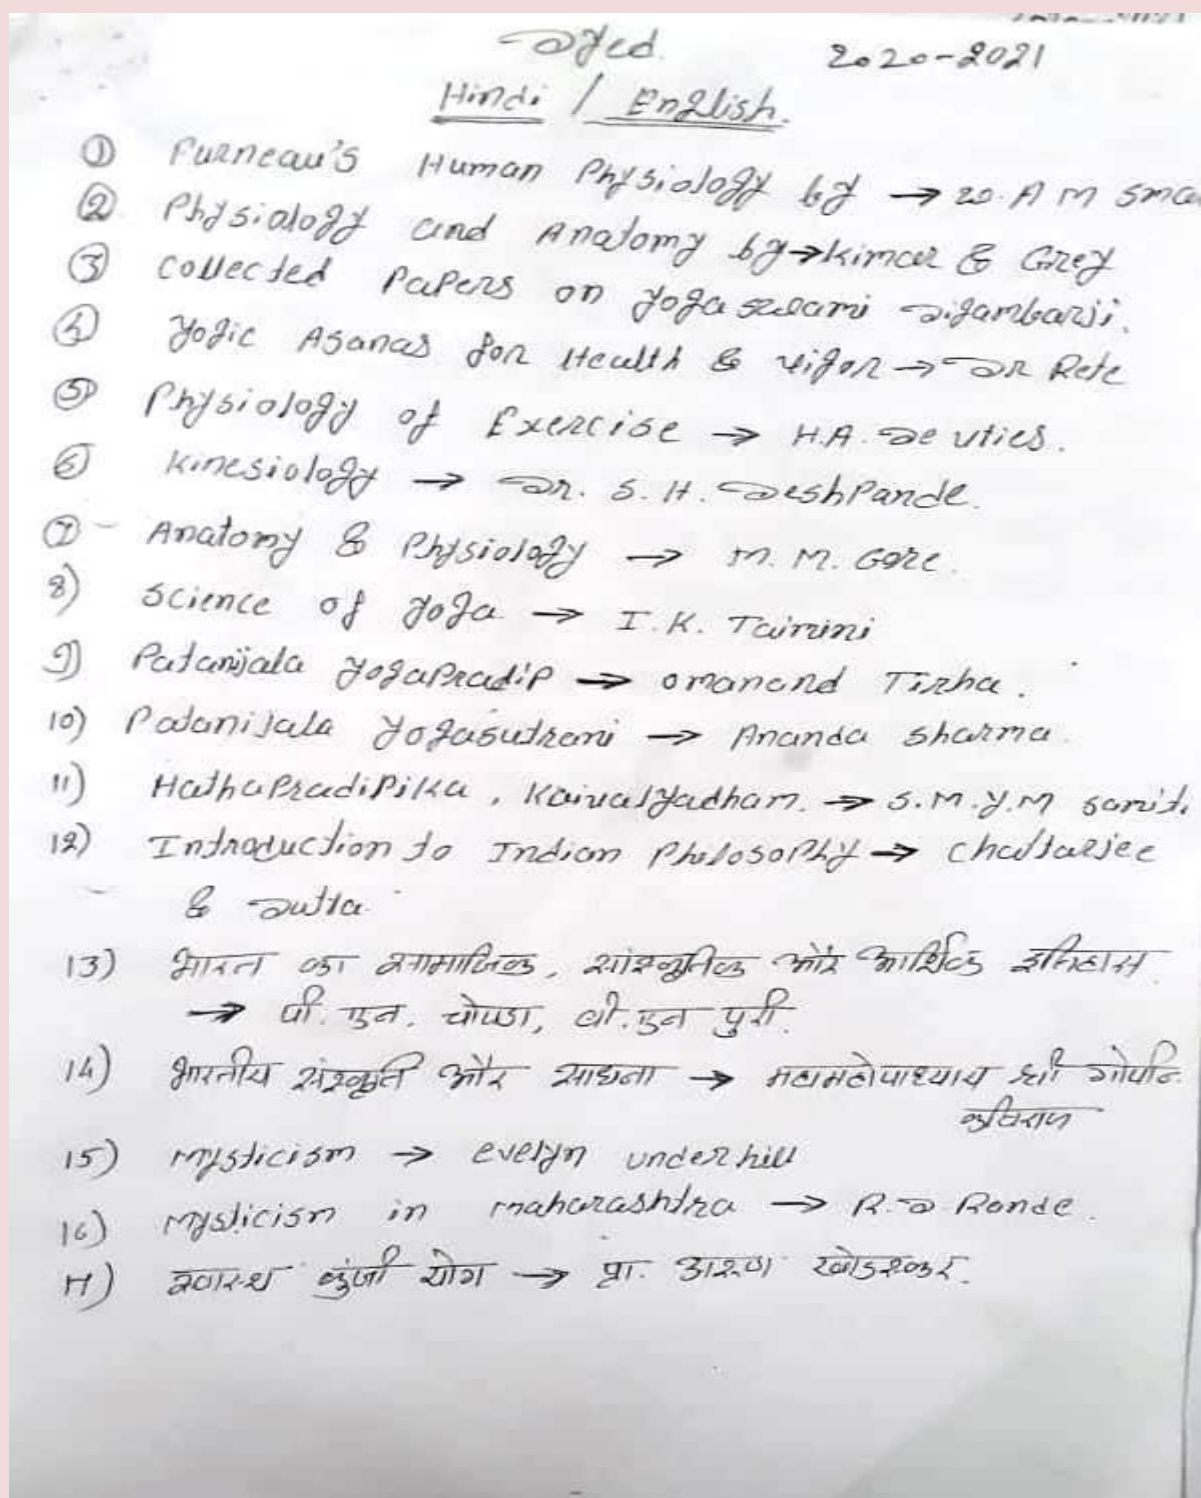 Dyed. 2020-2021
Hindi / English.
① Furneau's Human Physiology by → W. A M Sma
② Physiology and Anatomy by → Kimar & Grey
③ Collected Papers on Yoga Swami Digambarji.
④ Yogic Asanas for Health & Vigor → Dr Rete
⑤ Physiology of Exercise → H.A. De vties.
⑥ Kinesiology → Dr. S. H. DeshPande.
⑦ Anatomy & Physiology → M. M. Gore.
8) Science of Yoga → I. K. Taimini
9) Patanijala YogaPradip → Omanand Tirha.
10) Patanijala Yogasutrani → Ananda Sharma.
11) HathaPradiPika, Kaivalyadham. → S.M.Y.M samiti
12) Introduction to Indian Philosophy → Chattarjee
& Dutta.
13) भारत का सामाजिक, सांस्कृतिक और आर्थिक इतिहास
→ पी. एन. चोपडा, बी.एन पुरी.
14) भारतीय संस्कृति और साधना → महामहोपाध्याय श्री गोपीन
कविराज
15) Mysticism → evelyn underhill
16) Mysticism in maharashtra → R. D Rande.
17) स्वास्थ कुंजी योग → प्रा. अरूण खोडस्कर.